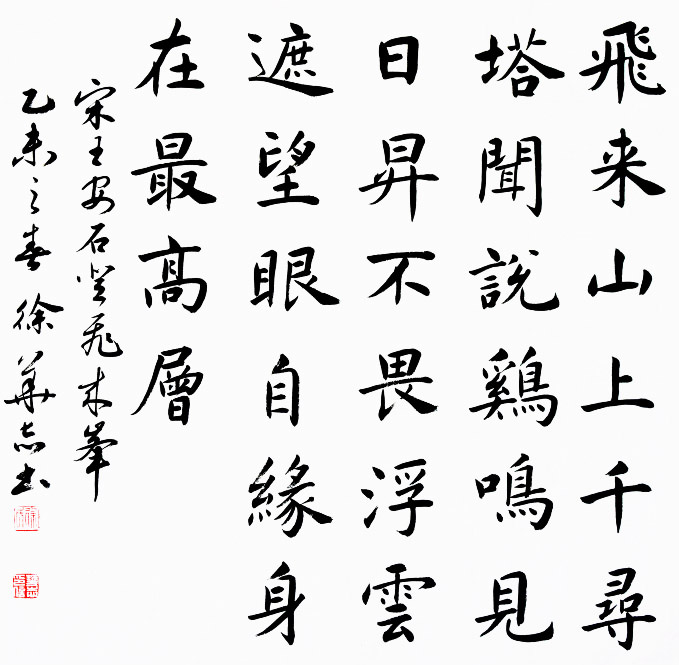 飛来山上千尋
塔聞說鷄鳴見
日昇不畏浮雲
遮望眼自緣身
在最高層
宋王安石登飛来峯
乙未之春徐華志书